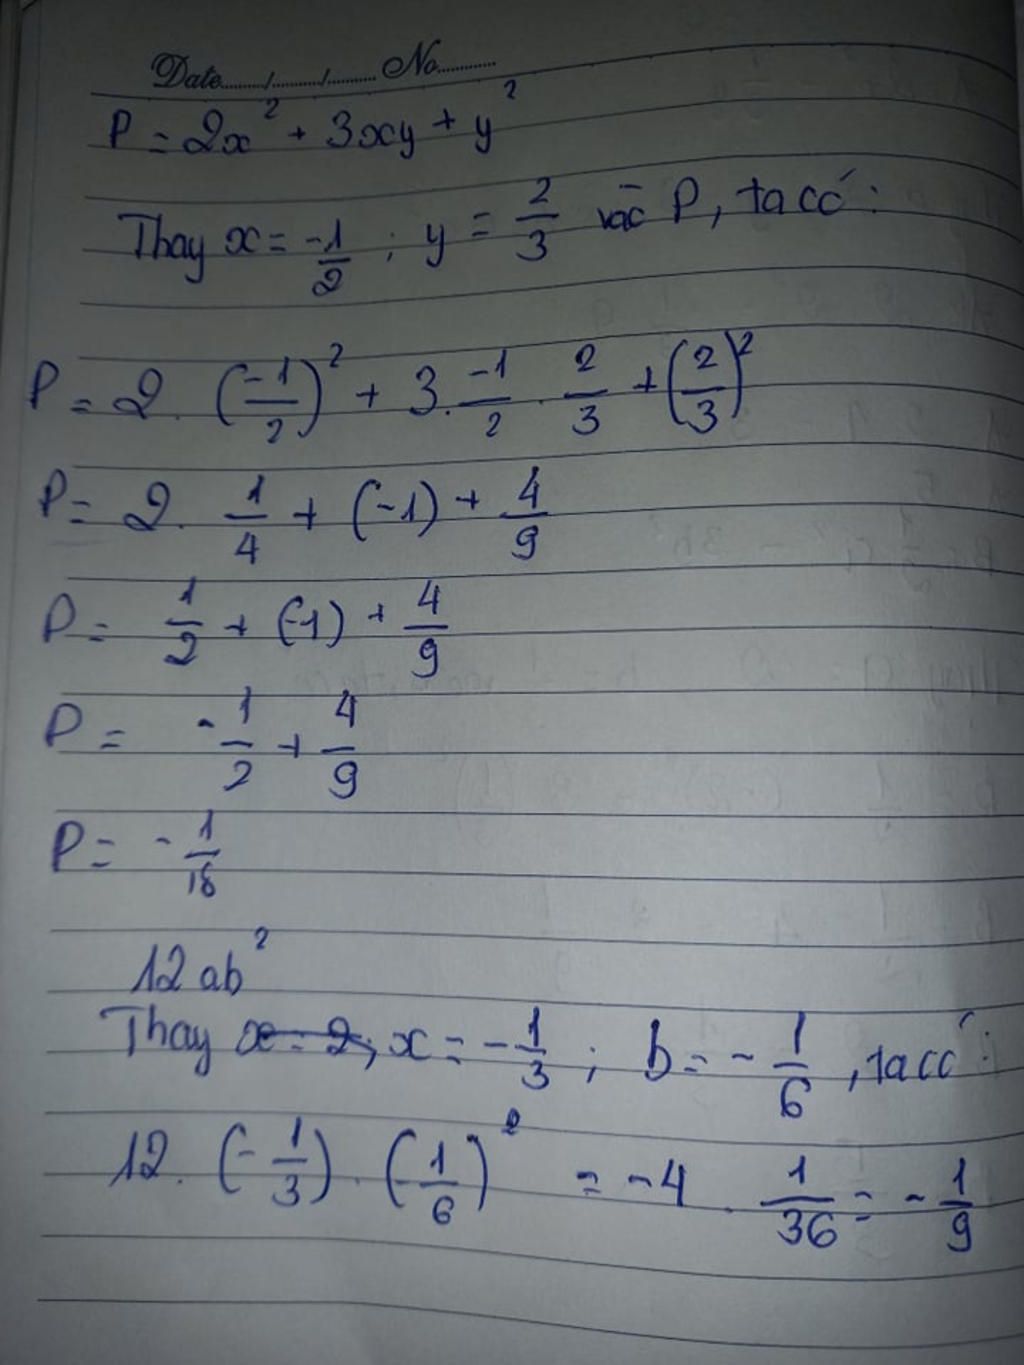 Date......./......../........ No............
P = 2x² + 3xy + y²
Thay x = -1/2 ; y = 2/3 vào P, ta có :
P = 2. (-1/2)² + 3. -1/2 . 2/3 + (2/3)²
P = 2. 1/4 + (-1) + 4/9
P = 1/2 + (-1) + 4/9
P = -1/2 + 4/9
P = -1/18
12ab²
Thay x = 2, x = -1/3 ; b = -1/6 , ta có :
12. (-1/3) . (-1/6)² = -4 . 1/36 = -1/9